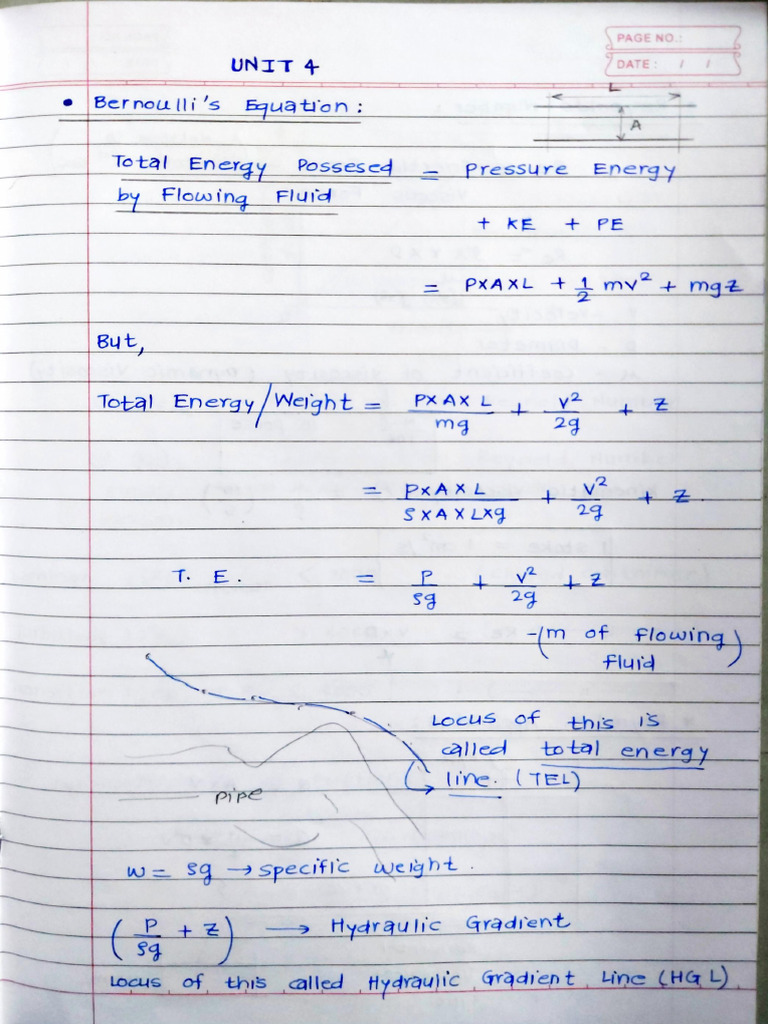 PAGE NO.:
DATE: / /
UNIT 4
• Bernoulli's Equation:
L
A
Total Energy Possesed = Pressure Energy
by Flowing Fluid
+ KE + PE
= P×A×L + 1/2 mv² + mgz
But,
Total Energy/Weight = P×A×L/mg + v²/2g + z
= P×A×L/ρ×A×L×g + v²/2g + z.
T. E. = P/ρg + v²/2g + z
-(m of flowing
fluid)
Locus of this is
called total energy
line. (TEL)
pipe
w = ρg → specific weight.
(P/ρg + z) → Hydraulic Gradient
Locus of this called Hydraulic Gradient Line (HGL)